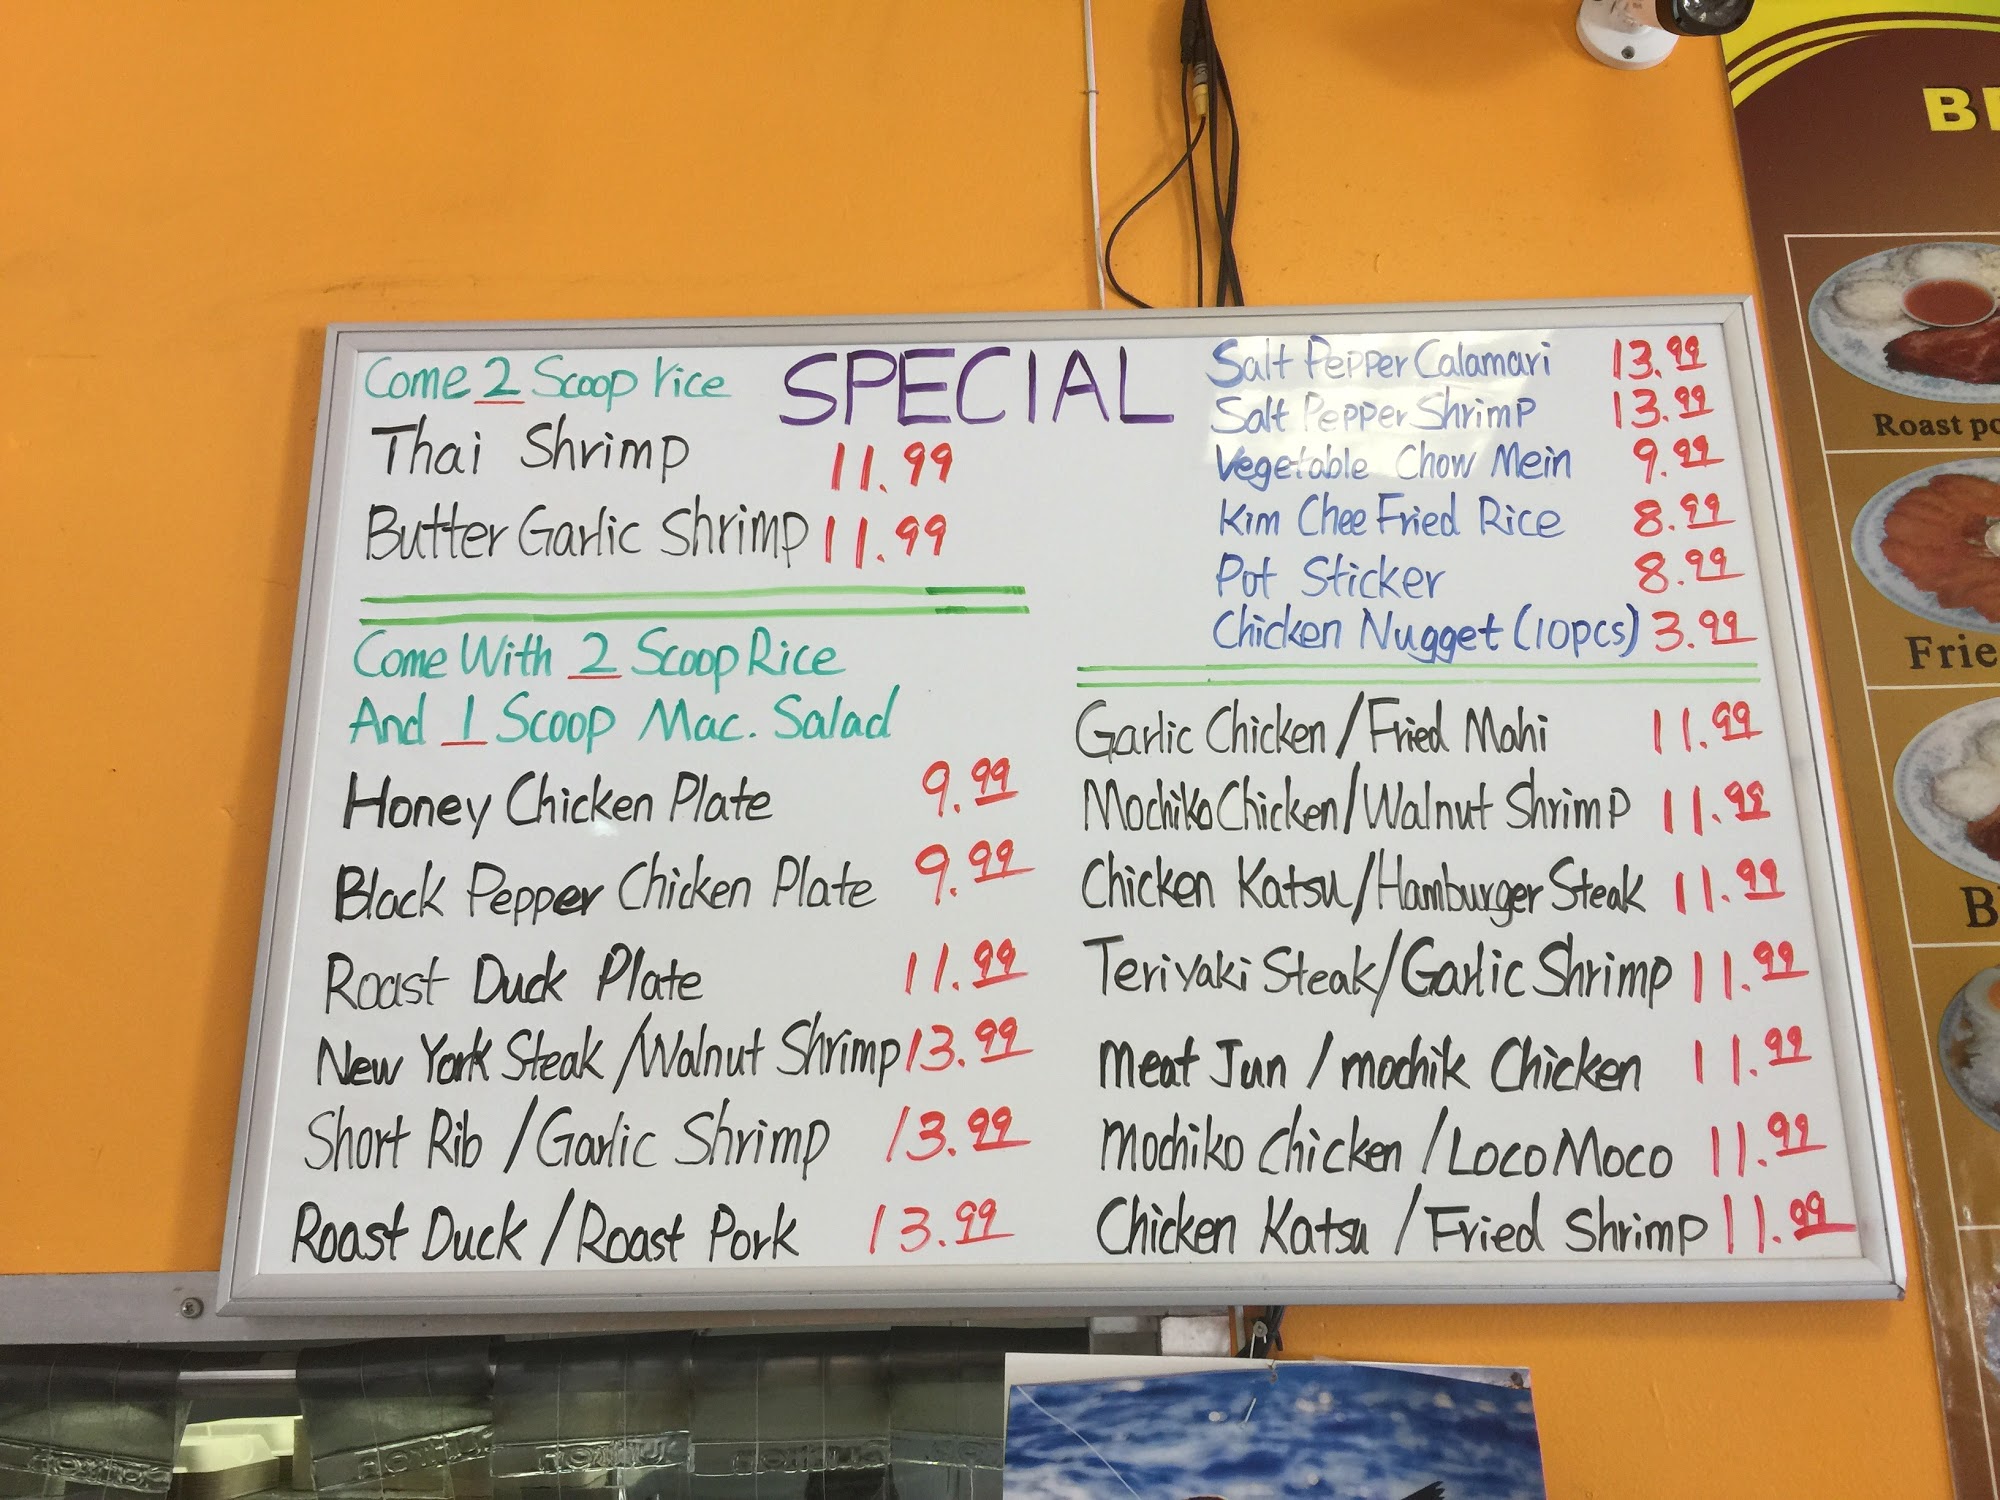 SPECIAL
Come 2 Scoop rice
Thai Shrimp 11.99
Butter Garlic Shrimp 11.99
Come With 2 Scoop Rice
And 1 Scoop Mac. Salad
Honey Chicken Plate 9.99
Black Pepper Chicken Plate 9.99
Roast Duck Plate 11.99
New York Steak / Walnut Shrimp 13.99
Short Rib / Garlic Shrimp 13.99
Roast Duck / Roast Pork 13.99
Salt Pepper Calamari 13.99
Salt Pepper Shrimp 13.99
Vegetable Chow Mein 9.99
Kim Chee Fried Rice 8.99
Pot Sticker 8.99
Chicken Nugget (10pcs) 3.99
Garlic Chicken / Fried Mahi 11.99
Mochiko Chicken / Walnut Shrimp 11.99
Chicken Katsu / Hamburger Steak 11.99
Teriyaki Steak / Garlic Shrimp 11.99
Meat Jun / mochik Chicken 11.99
Mochiko Chicken / Loco Moco 11.99
Chicken Katsu / Fried Shrimp 11.99
Roast